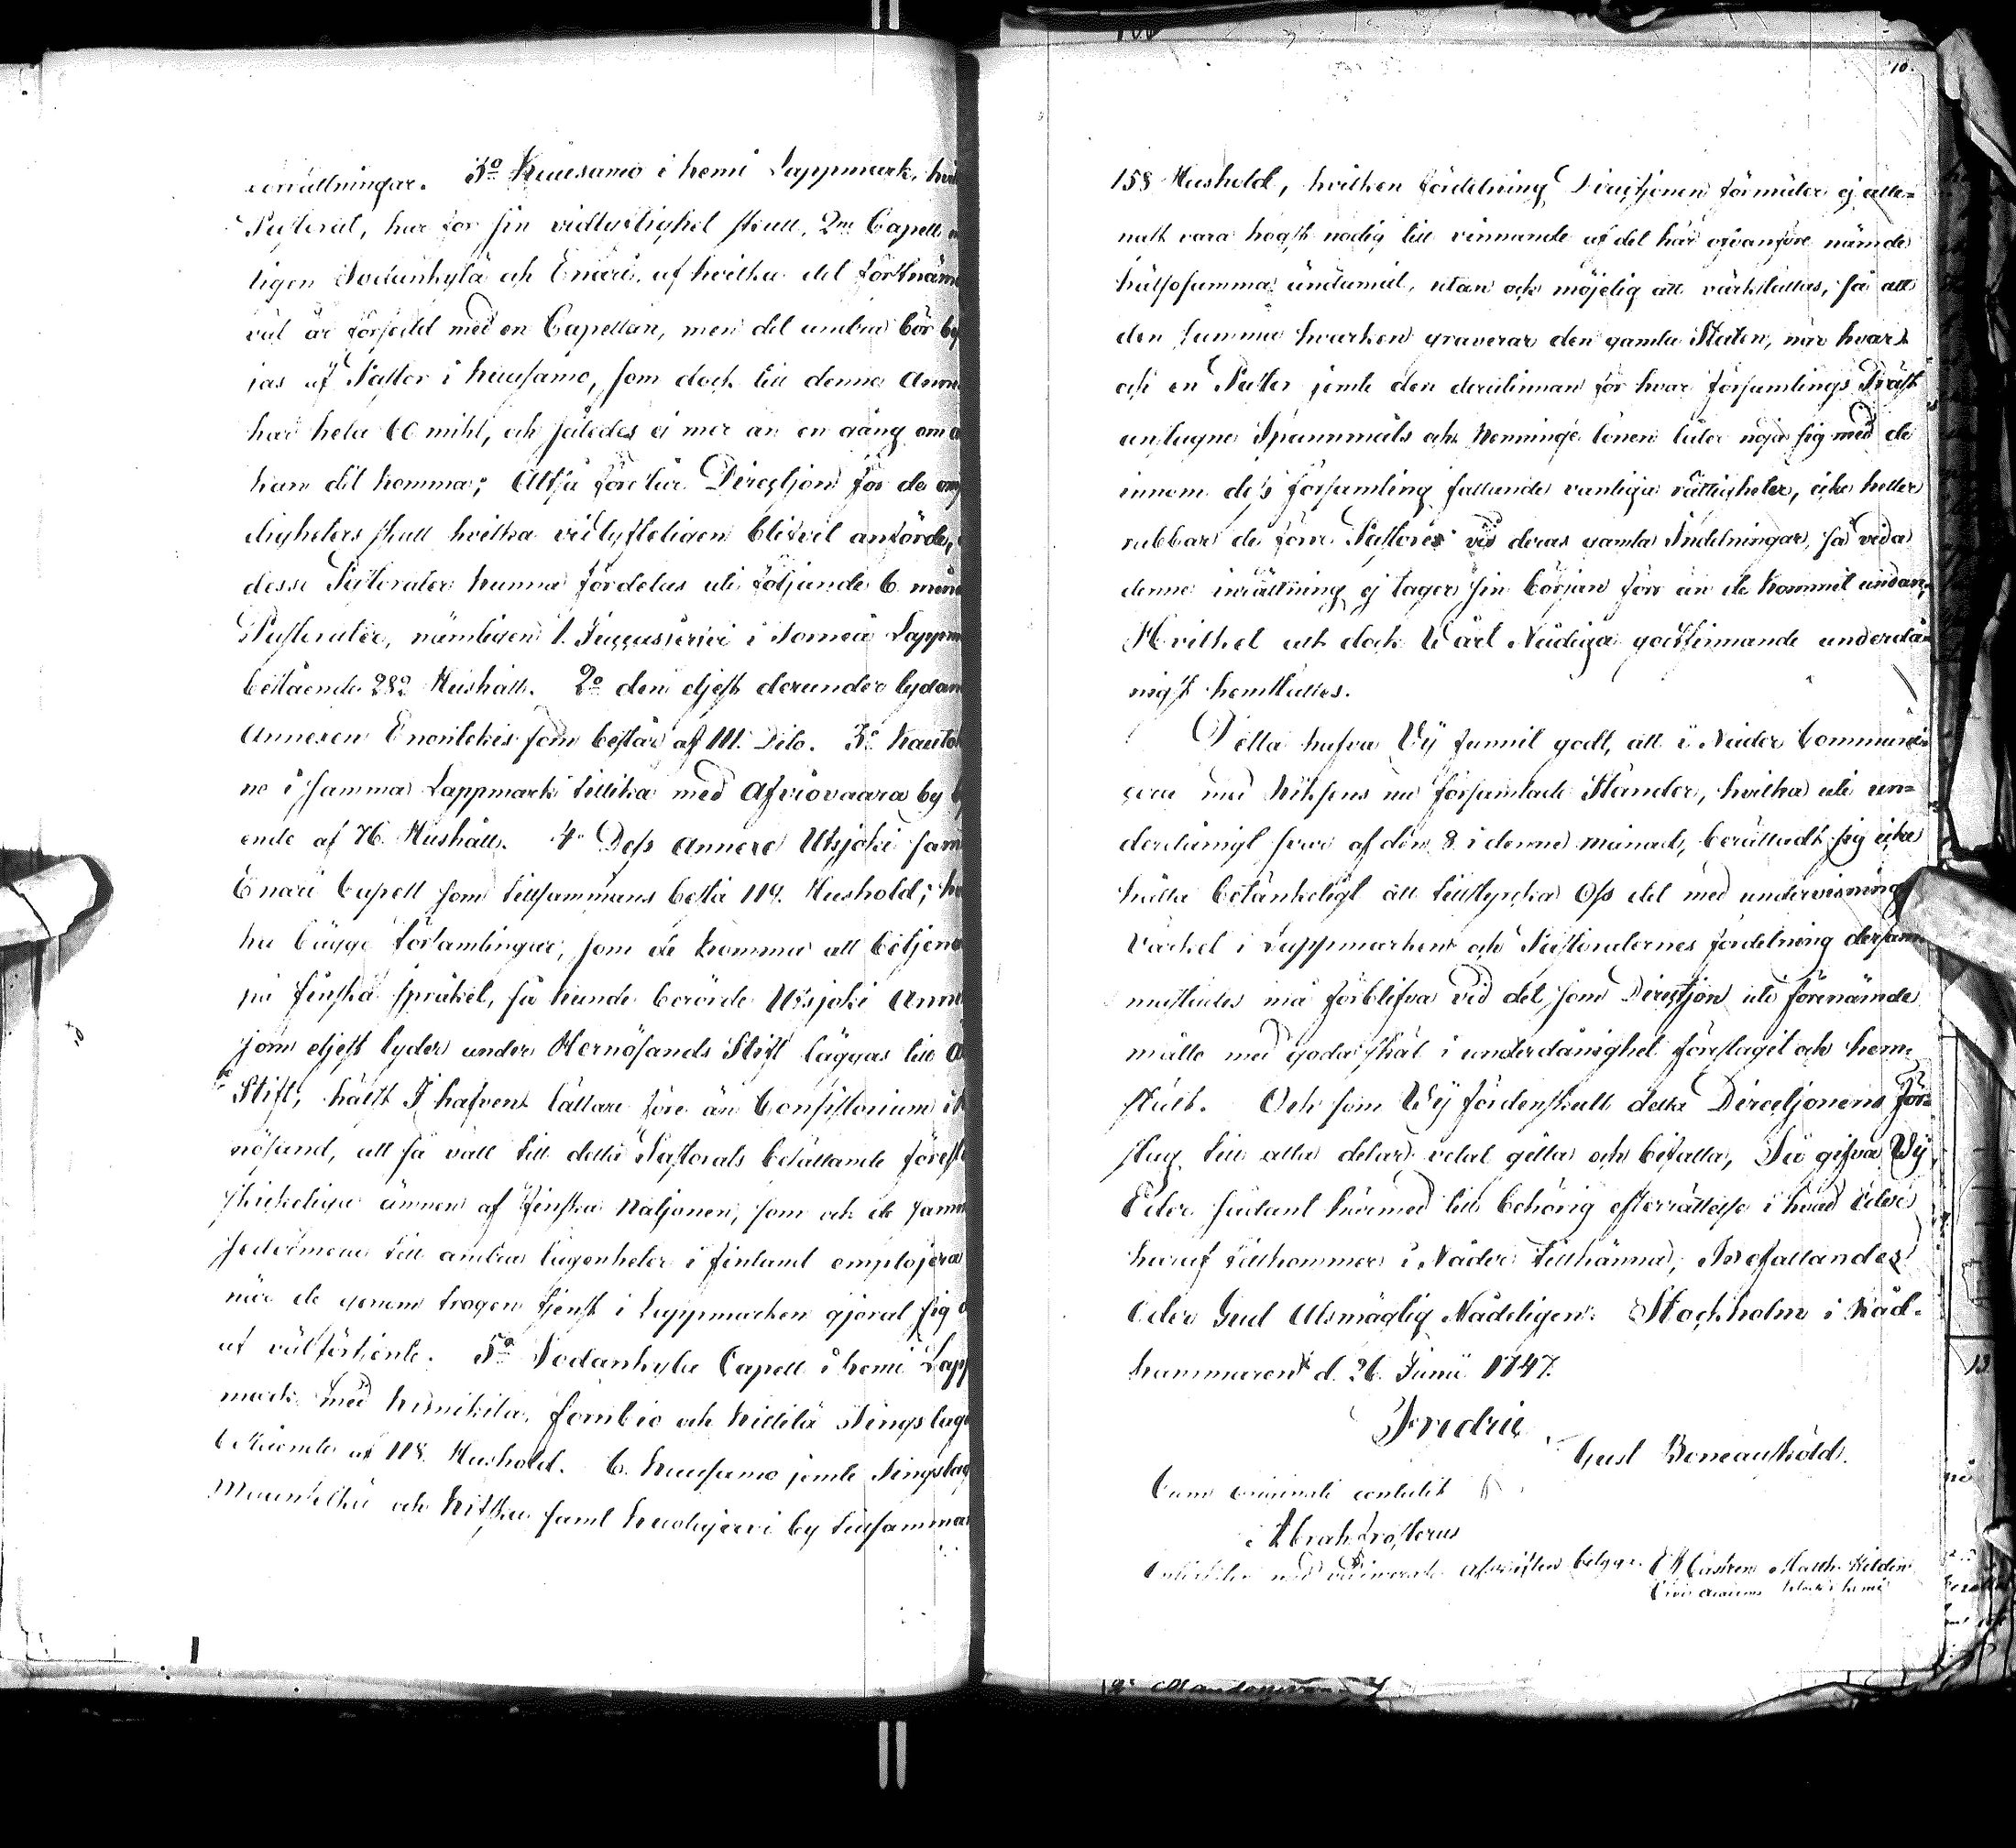 förrättningar. 3o Kuusamo i Kemi Lappmark, hvi
Pastorat, har för sin vidlyftighet skull, 2ne Capell
ligen Sodankylä och Enare, af hvilka det förstnäm
väl är försedd med en Capellan, men det andra bör be
jas af Pastor i Kuusamo, som doch till denna Anne
har hela 60 mihl, och således ei mer än en gång om
kan dit komma; Altså före tär Direction för de om
ligheters skull hvilka vidlyfteligen blifvit anförde,
desse Pastorater kunna fördelas uti följande 6 min
Pastorater, nämligen 1. Juckasjervi i Torneå Lappm
bestående 282 Hushåll. 2o den eljest derunder lydan
Annexen Enontekis som består af 111. Dito. 3o Kauto
no i samma Lappmark tillika med Afviovaara by
ende af 76. Hushåll. 4o Dess Annexe Utsjoki sam
Enare Capell som tillsammans bestå 114. Hushold; hv
ka bägge församlingar, som de komma att betjena
på finska språket, så kunde berörde Utsjoki Ann
som eljest lyder under Hernösands Stift läggas till Å
Stift, hälst I hafven lättare före än Consistorium i
nösand, att så väll till detta Pastorats besättande förest
skickelige ämnen af Finska Nationen, som och de samm
sedermera till andra lägenheter i Finland employera
när de genom trogen tjenst i Lappmarken gjorat sig
af välförtjente. 5o Sodankylä Capell i Kemi Lapp
mark med Kemikilä, Sombio och Kittilä Tingslag
bestående af 118. Hushold. 6. Kuusamo jemte Tingslag
Maanselkä och Kitka samt Kuolajervi by tillsamma
10.
158 Hushold, hvilken fördelning Directionen förmäler ej alle-
nast vara högst nödig till vinnande af det här ofvanföre nämde
hälsosamma ändamål, utan och möjelig att värkställas, så att
den samma hvarken graverar den gamla Staten, när hvar
och en Pastor jemte den derstädes för hvar församlings Präst
anslagne Spannmåls och Penninge lönen låter nöja sig med de
innom des församling fallande vanliga rättigheter, eike heller
rubbar de förre Pastorer vid deras gamla Indelningar, så vida
denne inrättning ej tager sin början förr än de kommit undan,
Hvilket alt doch Wårt Nådiga godtfinnande underdå-
nigst hemstälts.
Detta hafva Wij funnit godt, att i Nåder Communi-
cera med Riksens nu församlade Ständer, hvilka uti un-
derdånigt svar af den 8. i denne månad, berättadt sig eike
hålla betänkeligt att tillstyrcka Oss det med undervisnings
värket i Lappmarken och Pastoraternes fördelning dersam-
mastädes må förblifva vid det, som Direction uti förenämde
måtto med goda skäl i underdånighet föreslagit och hem-
stält. Och som Wij fördenskull detta Directionens för-
slag till alla delar velat gilla och befalla, Så gifva Wij
Eder sådant härmed till behörig efterrättelse i hvad Eder
häraf tillkommer i Nåder tillkänna; Befallandes
Eder Gud Alsmägtig Nådeligen. Stockholm i Råd-
kammaren d. 26. Junii 1747.
Fredric
Gust Boneauschöld.
Cum originali contulit
Abrah. Frosterus
med afskriften betyga E M Castren Matth. Heldén